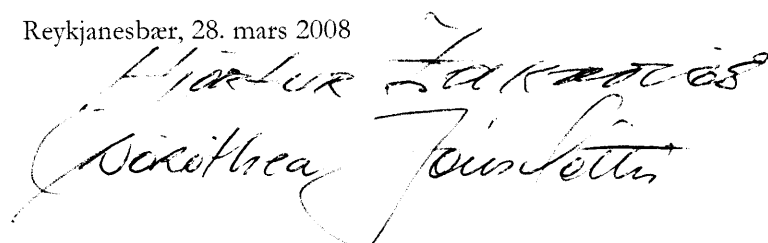 Reykjanesbær, 28. mars 2008
Hjörtur Zakaríasson
Dórothea Jónsdóttir